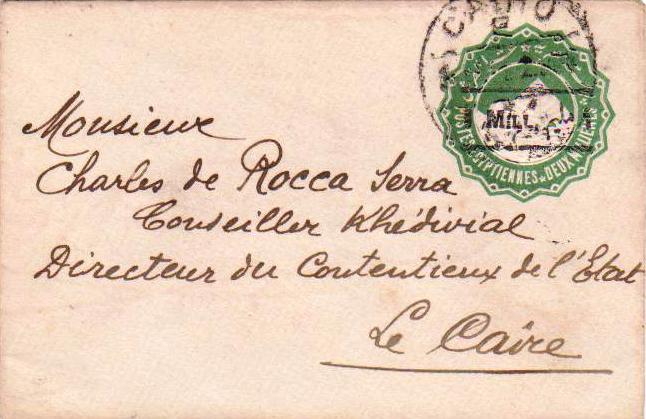 CAIRO
POSTES EGYPTIENNES DEUX MILLIEMES
MILL
Monsieur
Charles de Rocca Serra
Conseiller Khédivial
Directeur du Contentieux de l'Etat
Le Caire